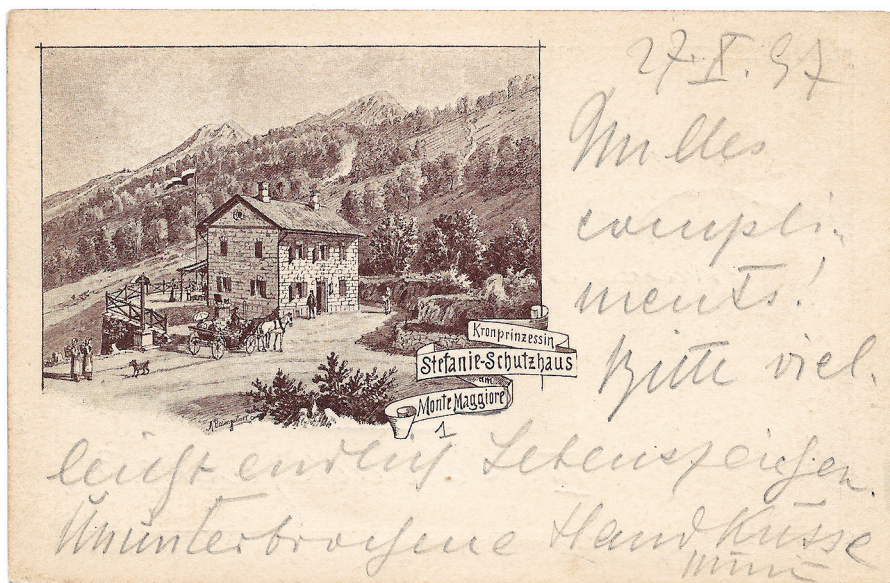 27.X.97
Milles
compli-
ments!
Bitte viel-
leicht endlich Lebenszeichen.
Ununterbrochene Handküsse
Kronprinzessin
Stefanie-Schutzhaus
am
Monte Maggiore
1